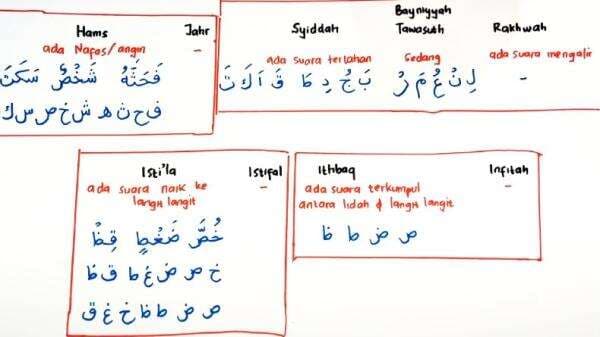 Hams Jahr
ada Nafas/angin -
فَحَثَّهُ شَخْصٌ سَكَتَ
ف ح ث ه ش خ ص س ك
Syiddah Bayniyyah Tawasuth Rakhwah
ada suara tertahan Sedang ada suara mengalir
لِنْ عُمَرْ بَ جُ دِ طَ قَ اَ كَ تَ
-
Isti'la Istifal
ada suara naik ke -
langit langit
خُصَّ ضَغْطٍ قِظْ
خ ص ض غ ط ق ظ
ص ض ط ظ خ غ ق
Ithbaq Infitah
ada suara terkumpul -
antara lidah & langit langit
ص ض ط ظ